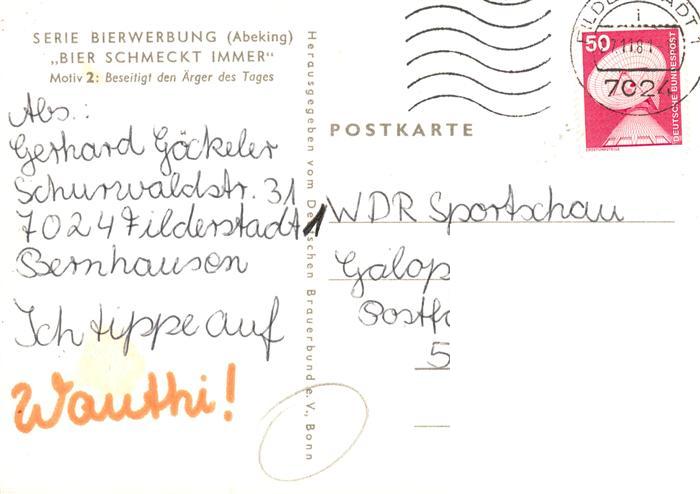 SERIE BIERWERBUNG (Abeking)
„BIER SCHMECKT IMMER"
Motiv 2: Beseitigt den Ärger des Tages
Abs.:
Gerhard Göckeler
Schurwaldstr. 31
7024 Filderstadt 1
Bernhausen
Ich tippe auf
Wauthi!
Herausgegeben vom Deutschen Brauerbund e.V., Bonn
POSTKARTE
50
DEUTSCHE BUNDESPOST
7024
WDR Sportschau
Galop
Postf
5